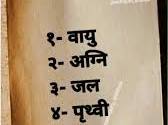 १- वायु
२- अग्नि
३- जल
४- पृथ्वी